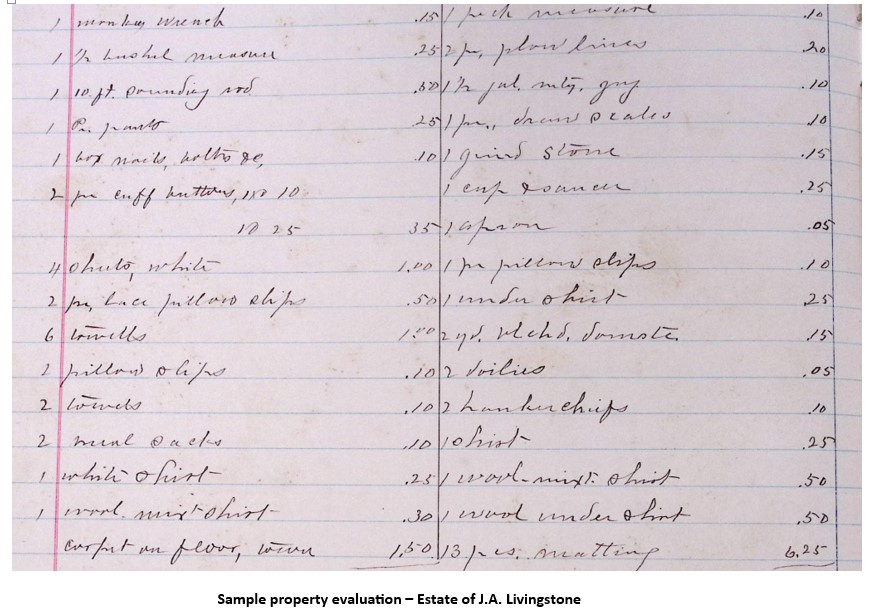 1 monkey wrench .15
1 ½ bushel measure .25
1 10 ft. sounding rod .50
1 Pr. pants .25
1 box nails, bolts &c, .10
2 pr cuff buttons, 1 @ 10
1 @ 25 35
4 shirts, white 1.00
2 pr, lace pillow slips .50
6 towells 1.00
2 pillow slips .10
2 towels .10
2 meal sacks .10
1 white shirt .25
1 wool-mixt shirt .30
carpet on floor, worn 1,50
1 peck measure .10
2 pr, plow lines .20
1 ½ gal. .10
1 pr., draw scales .10
1 grind stone .15
1 cup & saucer .25
1 apron .05
1 pr pillow slips .10
1 under shirt .25
2 yd. blchd. domstc. .15
2 doilies .05
2 hankerchiefs .10
1 shirt .25
1 wool-mixt. shirt .50
1 wool under shirt .50
13 pcs. matting 6.25
Sample property evaluation – Estate of J.A. Livingstone